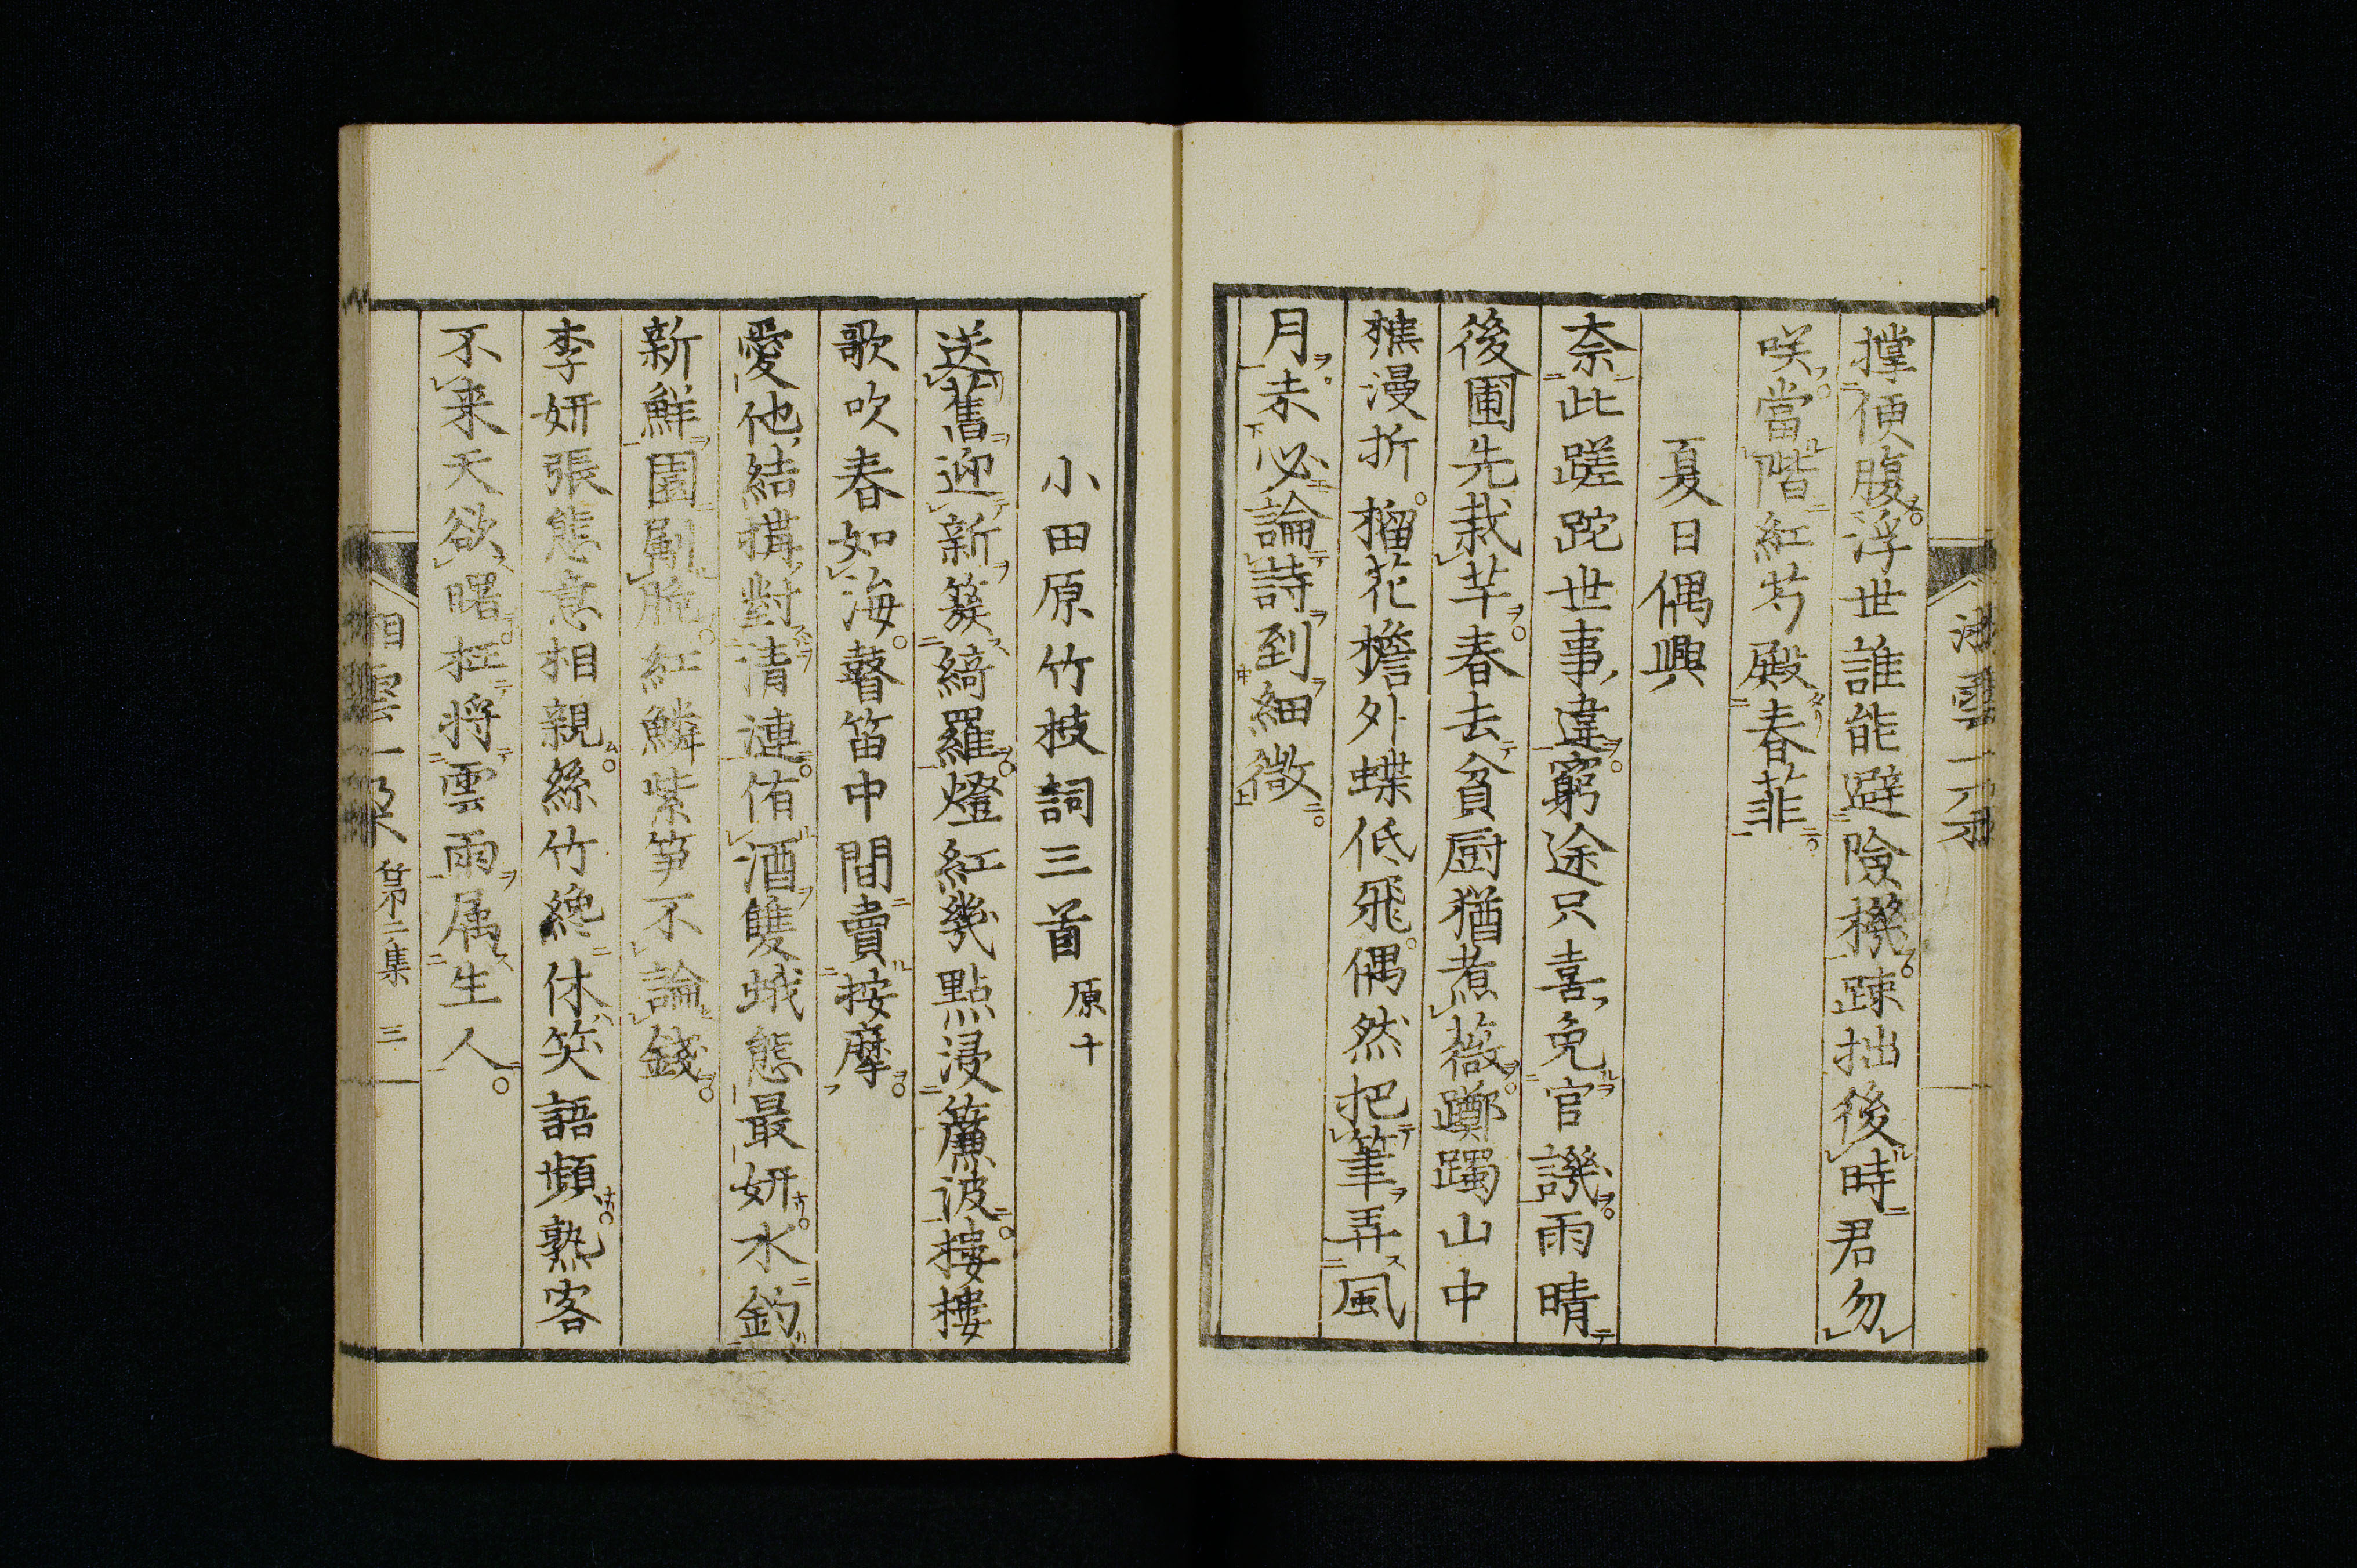 撑便腹浮世誰能避險機踈拙後時君勿
咲當階紅芍殿春菲
夏日偶興
奈此蹉跎世事違窮途只喜免官譏雨晴
後圃先栽芋春去貧厨猶煮薇躑躅山中
樵漫折榴花檐外蝶低飛偶然把筆弄風
月未必論詩到細微
小田原竹枝詞三首 原十
送舊迎新簇綺羅燈紅幾點浸簾波樓樓
歌吹春如海瞽笛中間賣按摩
愛他結搆對清漣侑酒雙蛾態最妍水釣
新鮮園劚脆紅鱗紫笋不論錢
李妍張態意相親絲竹纔休笑語頻熟客
不来天欲曙枉将雲雨属生人
湘雲一朶 第二集 三